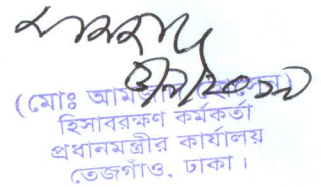 (মোঃ আমজাদ হোসেন)
হিসাবরক্ষণ কর্মকর্তা
প্রধানমন্ত্রীর কার্যালয়
তেজগাঁও, ঢাকা।